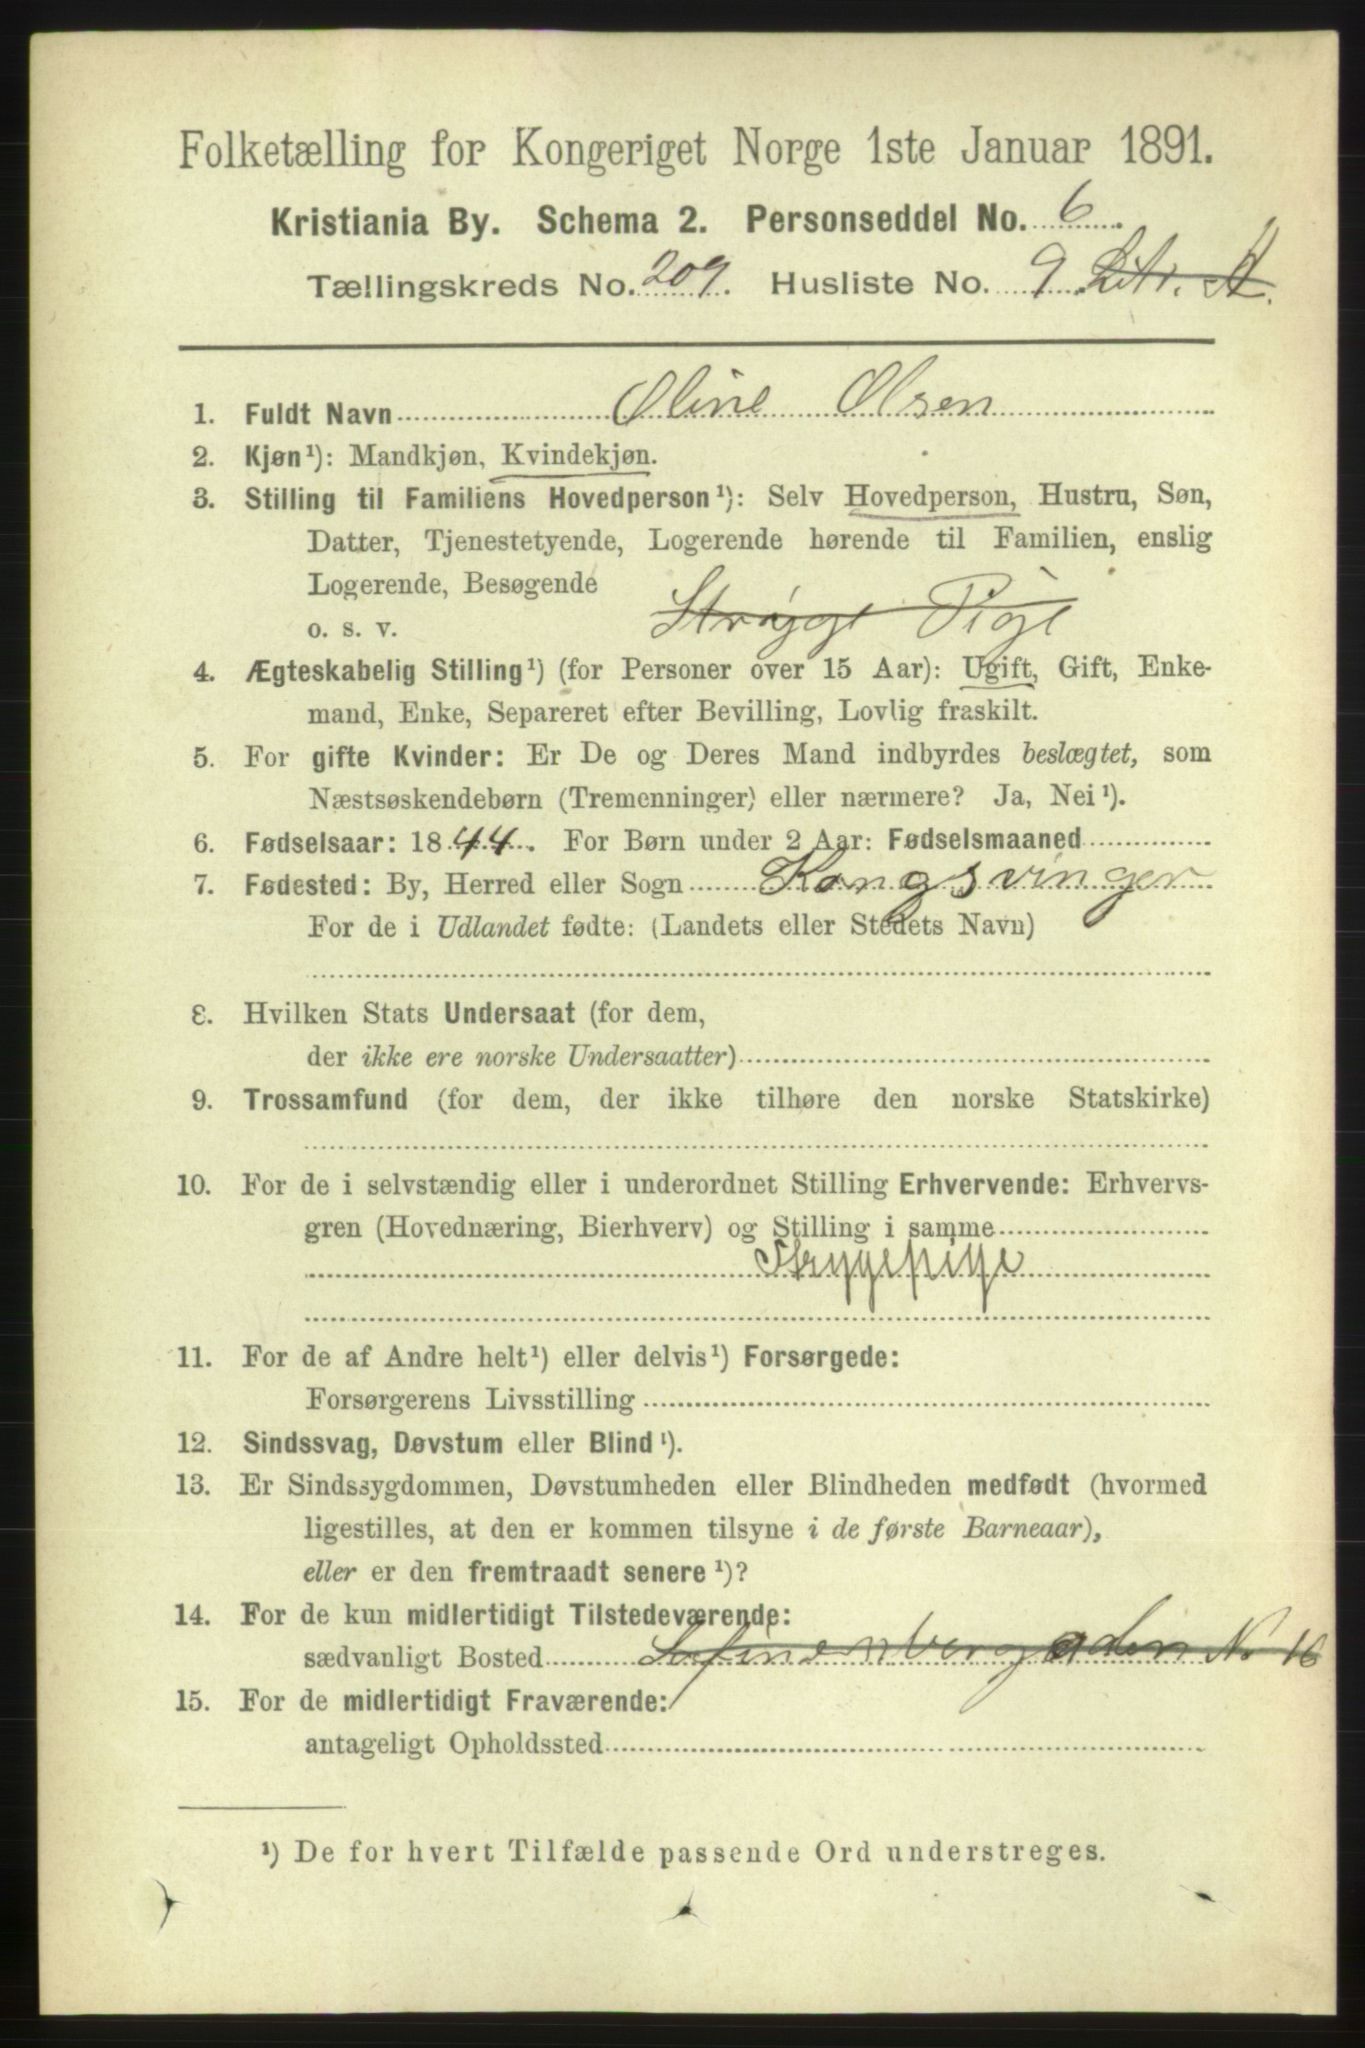 Folketælling for Kongeriget Norge 1ste Januar 1891.
Kristiania By. Schema 2. Personseddel No. 6
Tællingskreds No. 209. Husliste No. 9 Litr. A.
1. Fuldt Navn Oline Olsen
2. Kjøn¹): Mandkjøn, Kvindekjøn.
3. Stilling til Familiens Hovedperson¹): Selv Hovedperson, Hustru, Søn,
Datter, Tjenestetyende, Logerende hørende til Familien, enslig
Logerende, Besøgende
o. s. v. Strøyge Pige
4. Ægteskabelig Stilling¹) (for Personer over 15 Aar): Ugift, Gift, Enke-
mand, Enke, Separeret efter Bevilling, Lovlig fraskilt.
5. For gifte Kvinder: Er De og Deres Mand indbyrdes beslægtet, som
Næstsøskendebørn (Tremenninger) eller nærmere? Ja, Nei¹).
6. Fødselsaar: 1844. For Børn under 2 Aar: Fødselsmaaned
7. Fødested: By, Herred eller Sogn Kongsvinger
For de i Udlandet fødte: (Landets eller Stedets Navn)
8. Hvilken Stats Undersaat (for dem,
der ikke ere norske Undersaatter)
9. Trossamfund (for dem, der ikke tilhøre den norske Statskirke)
10. For de i selvstændig eller i underordnet Stilling Erhvervende: Erhvervs-
gren (Hovednæring, Bierhverv) og Stilling i samme
Strygepige
11. For de af Andre helt¹) eller delvis¹) Forsørgede:
Forsørgerens Livsstilling
12. Sindssvag, Døvstum eller Blind¹).
13. Er Sindssygdommen, Døvstumheden eller Blindheden medfødt (hvormed
ligestilles, at den er kommen tilsyne i de første Barneaar),
eller er den fremtraadt senere¹)?
14. For de kun midlertidigt Tilstedeværende:
sædvanligt Bosted No 16
15. For de midlertidigt Fraværende:
antageligt Opholdssted
¹) De for hvert Tilfælde passende Ord understreges.